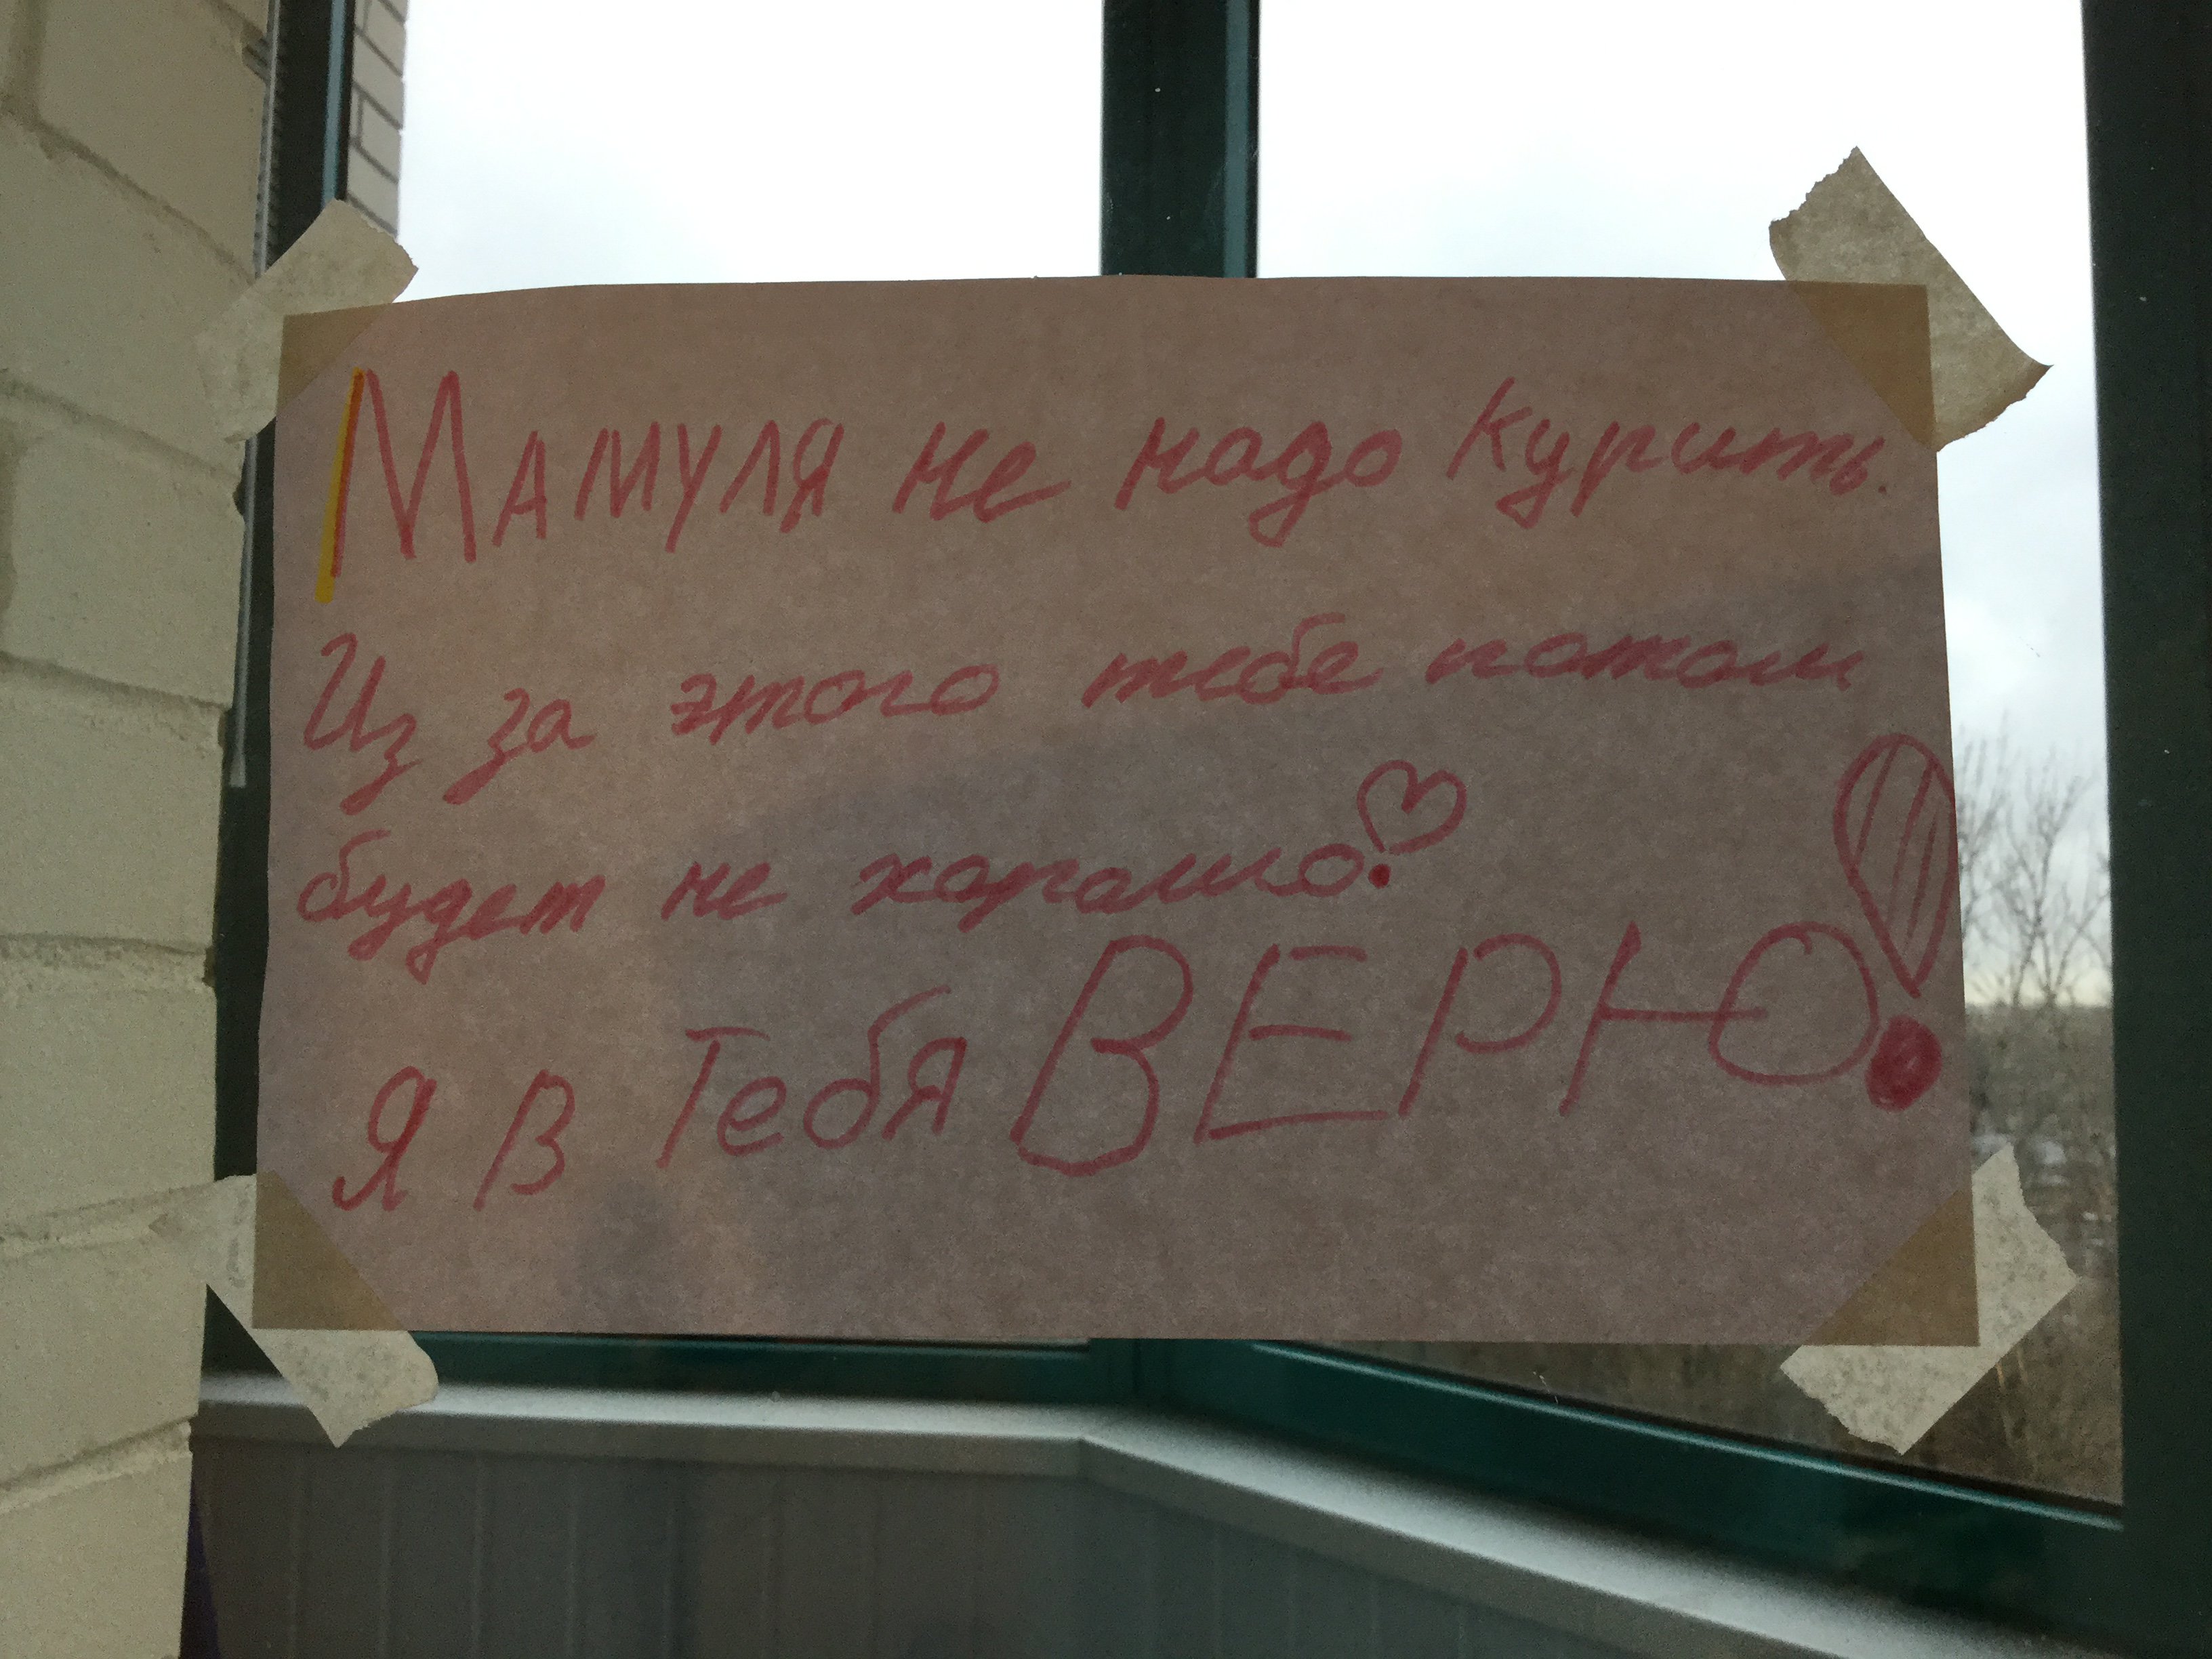 Мамуля не надо курить.
Из за этого тебе потом
будет не хорошо!
Я в Тебя ВЕРЮ!